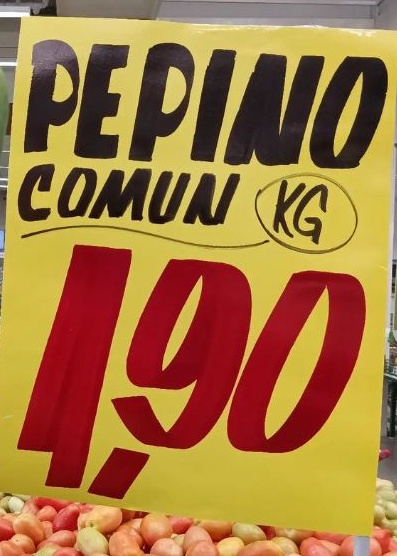 PEPINO
COMUN KG
1,90